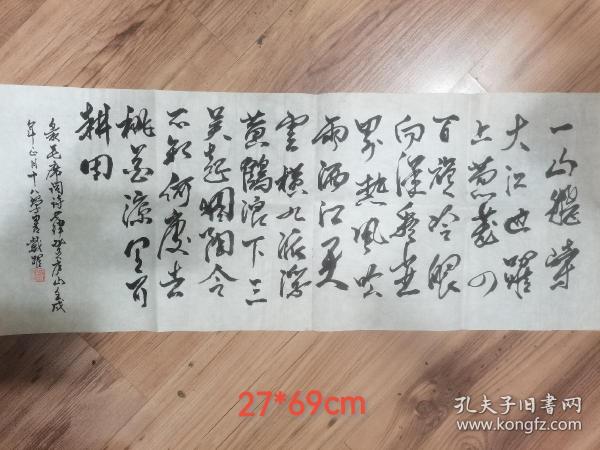 一山飛峙
大江边躍
上葱蘢四
百旋冷眼
向洋看世
界热風吹
雨洒江天
雲横九派浮
黄鶴浪下三
吴起烟陶令
不知何處去
桃花源里可
耕田
毛席词诗七律登庐山壬戌
年正月十八
27*69cm
孔夫子旧书网
www.kongfz.com